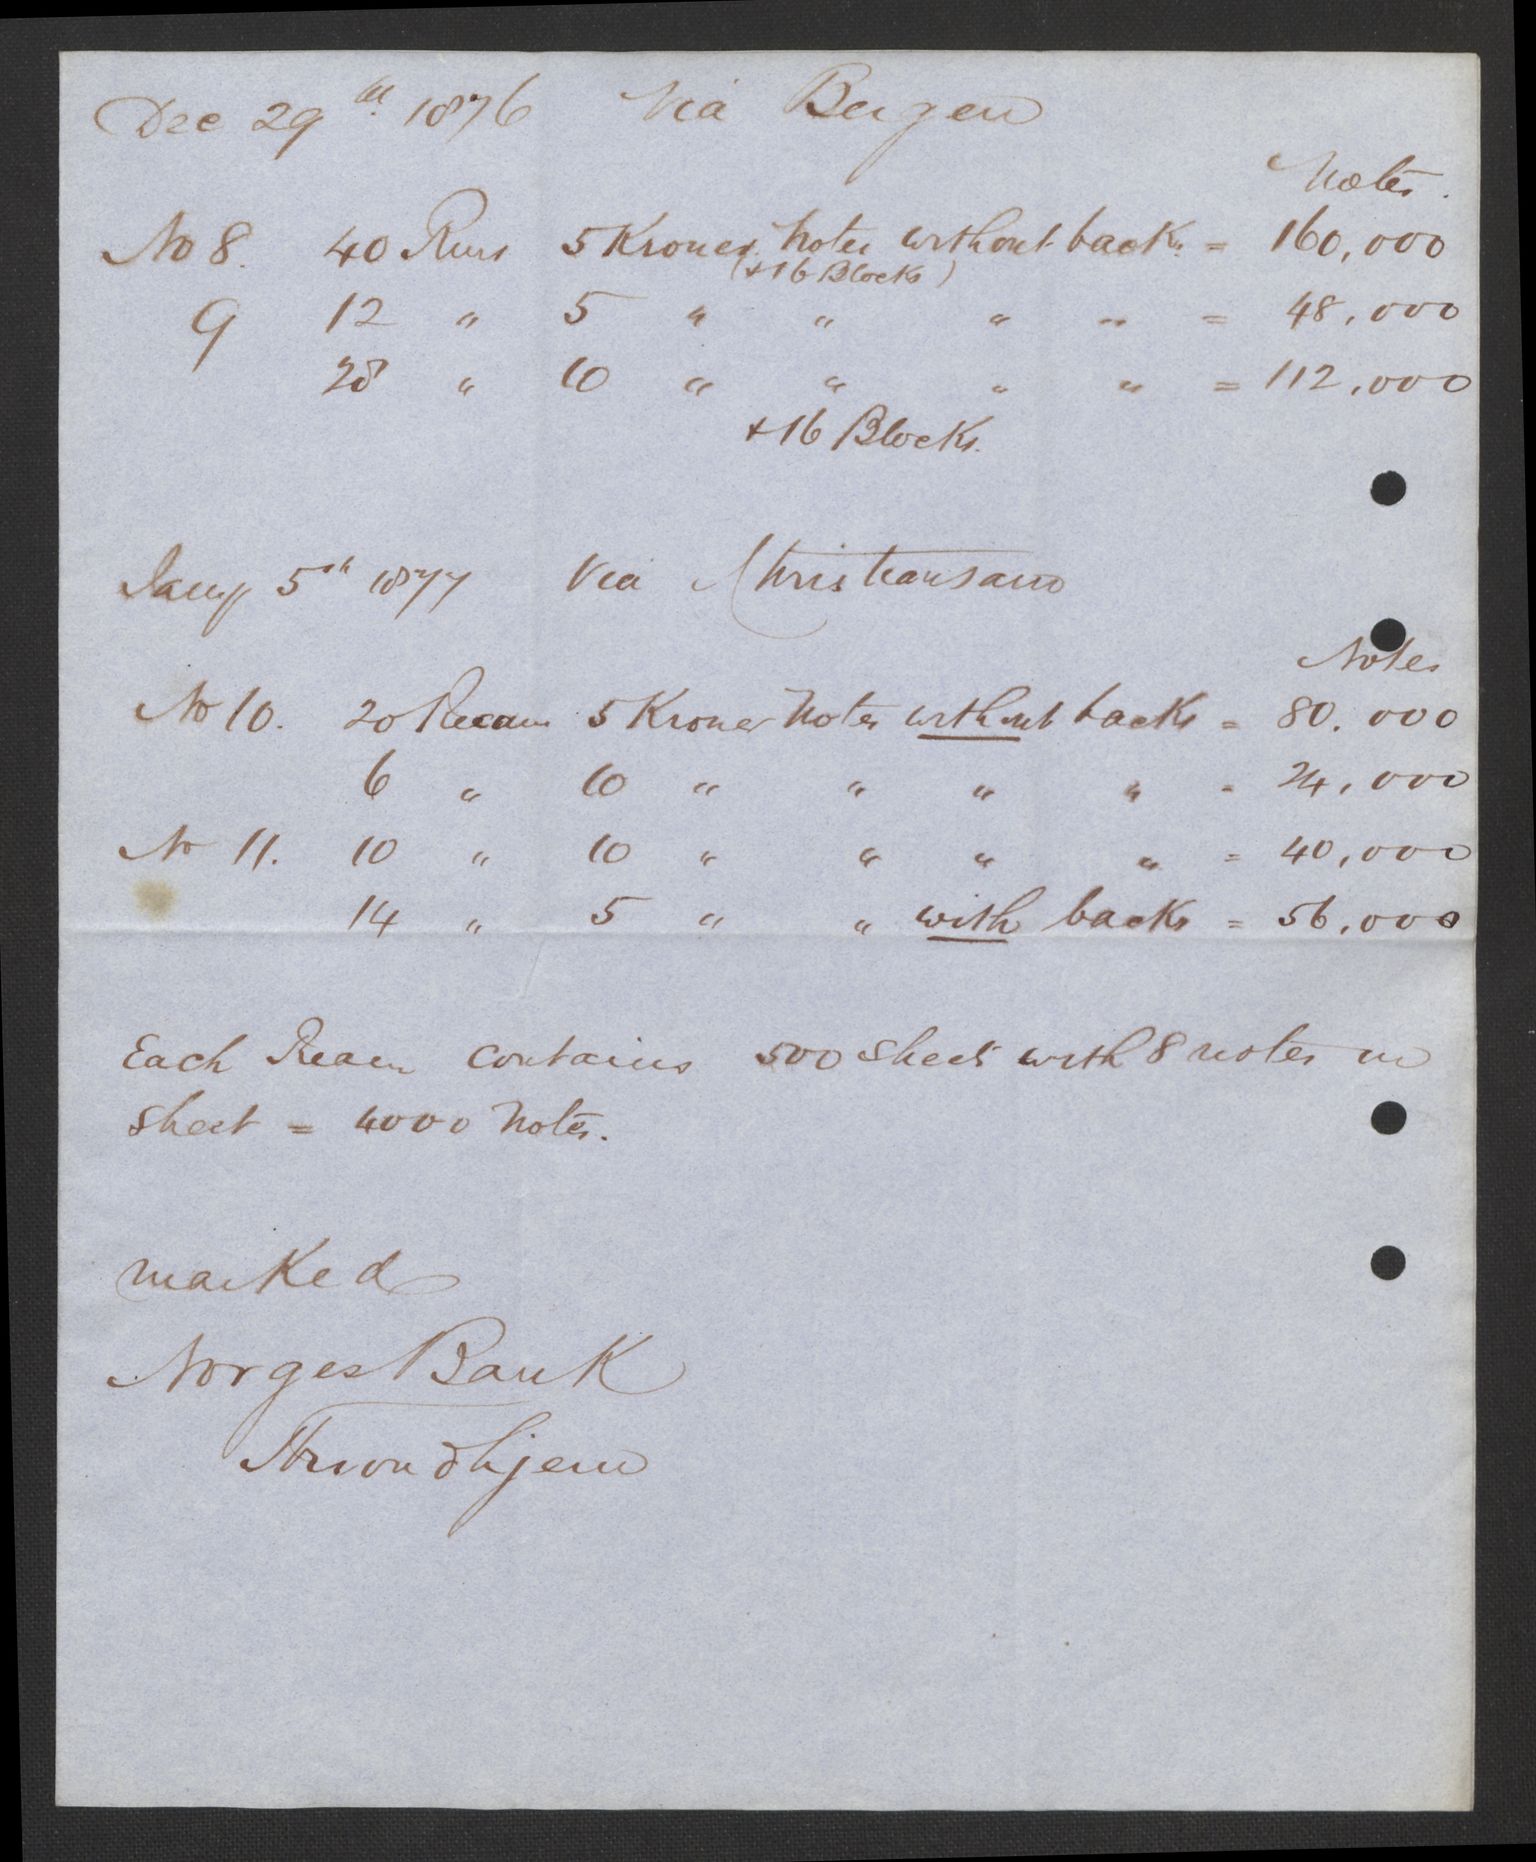 Dec 29th 1876 Via Bergen
Notes.
No 8. 40 Rms 5 Kroner Notes without backs = 160,000
(+16 Blocks)
9 12 " 5 " " " " = 48,000
28 " 10 " " " " = 112,000
+16 Blocks.
Jany 5th 1877 Via Christiansand
Notes
No 10. 20 Ream 5 Kroner Notes without backs = 80.000
6 " 10 " " " " = 24,000
No 11. 10 " 10 " " " " = 40,000
14 " 5 " " with backs = 56,000
Each Ream contains 500 sheets with 8 notes on
sheet = 4000 Notes.
marked
Norges Bank
Throndhjem